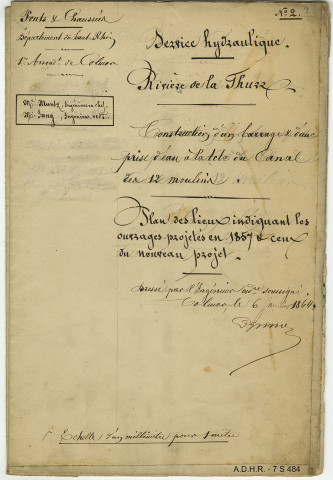 Ponts & Chaussées
Département du haut Rhin
1er Arrondt de Colmar
Nº 2.
Service hydraulique.
Mr Muntz, Ingénieur en chef.
Mr Ingénieur ordre
Rivière de la Thurr
Construction d'un barrage & d'une
prise d'eau à la tête du Canal
des 12 moulins
Plan des lieux indiquant les
ouvrages projetés en 1857 & ceux
du nouveau projet.
Dressé par l'Ingénieur ordre soussigné
Colmar, le 6 1864.
Echelle d'un millimètre pour 1 mètre
A.D.H.R. - 7 S 484